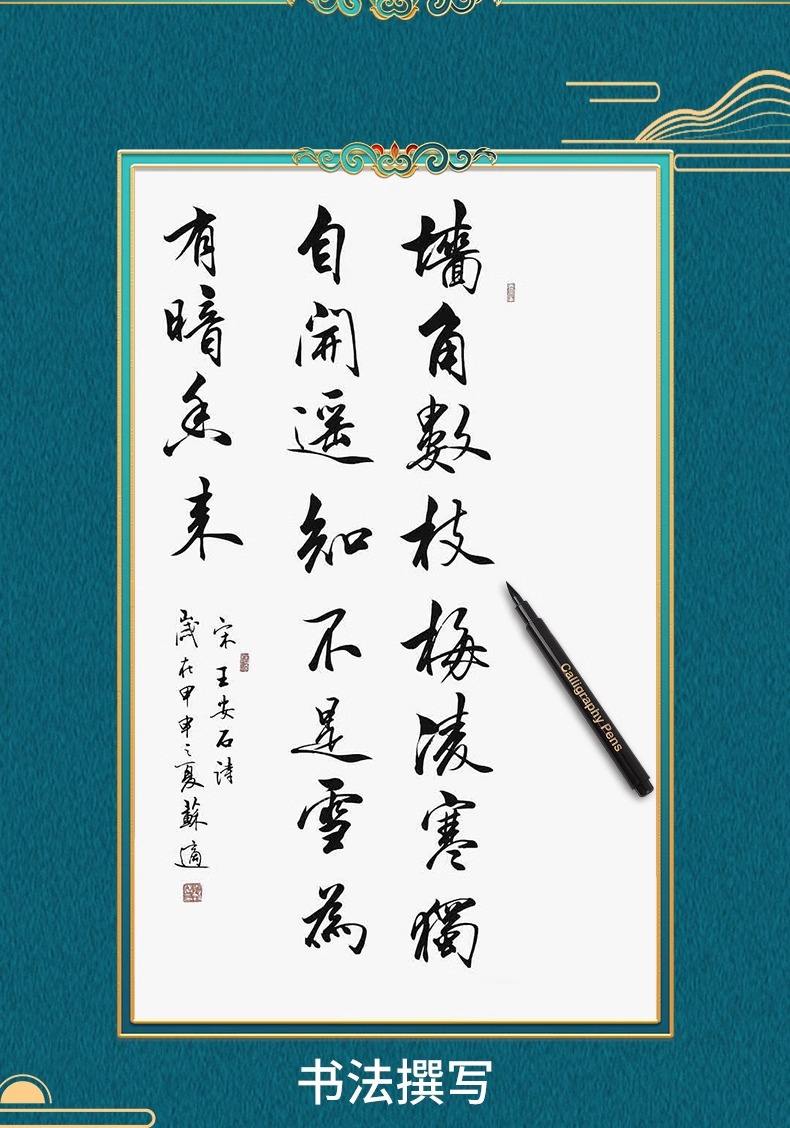 墙角數枝梅凌寒獨
自開遥知不是雪為
有暗香来
宋王安石诗
歲在甲申之夏蘇適
Calligraphy Pens
书法撰写